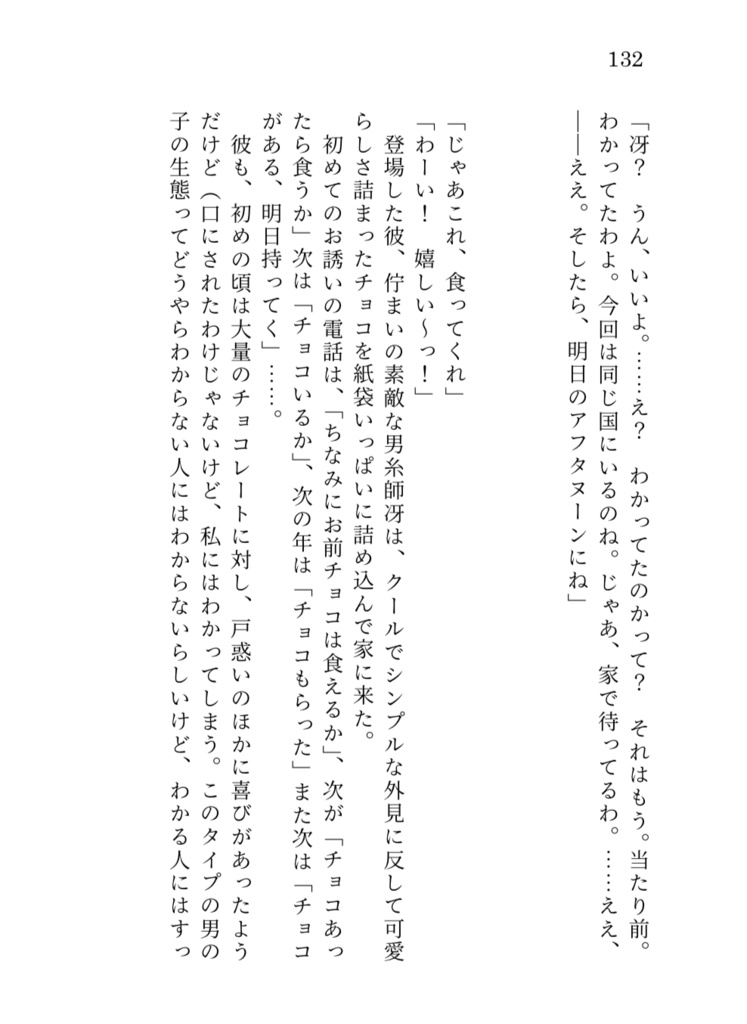 132
「冴？　うん、いいよ。……え？　わかってたのかって？　それはもう。当たり前。
わかってたわよ。今回は同じ国にいるのね。じゃあ、家で待ってるわ。……ええ、
――ええ。そしたら、明日のアフタヌーンにね」
「じゃあこれ、食ってくれ」
「わーい！　嬉しい～っ！」
　登場した彼、佇まいの素敵な男糸師冴は、クールでシンプルな外見に反して可愛
らしさ詰まったチョコを紙袋いっぱいに詰め込んで家に来た。
　初めてのお誘いの電話は、「ちなみにお前チョコは食えるか」、次が「チョコあっ
たら食うか」次は「チョコいるか」、次の年は「チョコもらった」また次は「チョコ
がある、明日持ってく」……。
　彼も、初めの頃は大量のチョコレートに対し、戸惑いのほかに喜びがあったよう
だけど（口にされたわけじゃないけど、私にはわかってしまう。このタイプの男の
子の生態ってどうやらわからない人にはわからないらしいけど、わかる人にはすっ